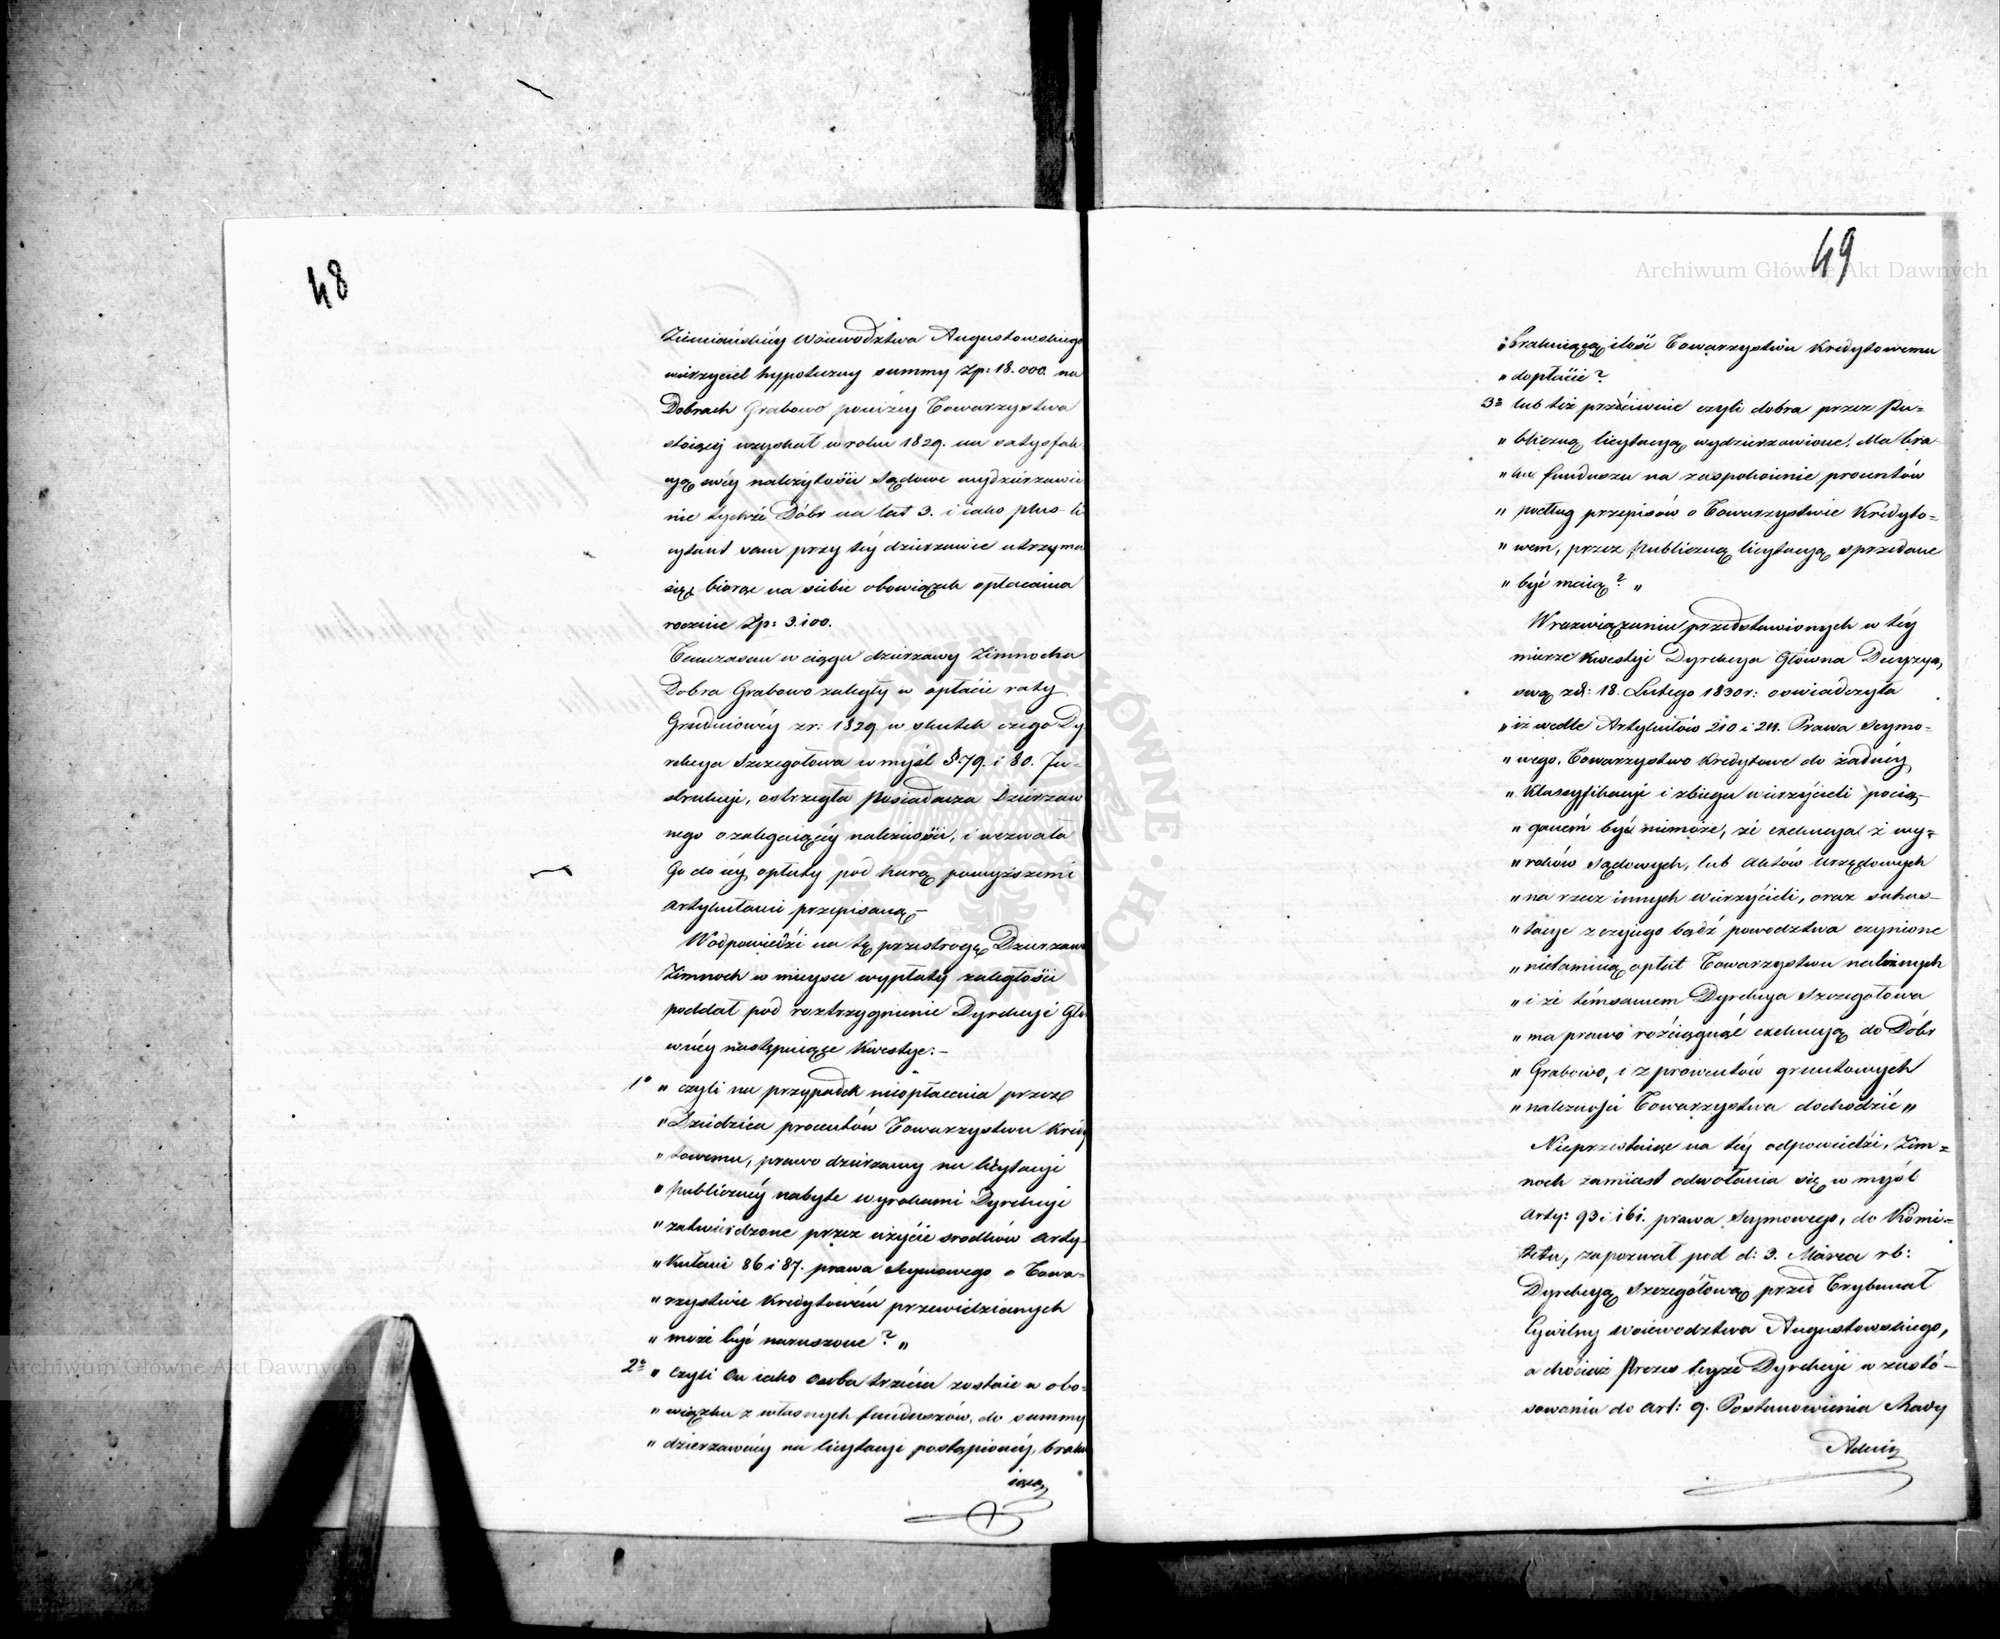 48
Ziemiańskiéy Woiewództwa Augustowskiego
wierzyciel hypoteczny summy Zp: 18.000. na
Dobrach Grabowo poniżéy Towarzystwa
stoiącéy uzyskał w roku 1829. na satysfak-
cyą swéy należytości Sądowe wydzierżawie
nie tychże Dóbr na lat 3. i iako plus-li
cytant sam przy téy dzierżawie utrzyma
się, biorąc na siebie obowiązek opłacania
rocznie Zp: 3.100.
Tymczasem w ciągu dzierżawy Zimnocha
Dobra Grabowo zaległy w opłacie raty
Grudniowéy z r: 1829 w skutek czego Dy
rekcya Szczegółowa w myśl §. 79. i 80. In-
strukcji, ostrzegła Posiadacza Dzierżaw
nego o zalegaiącéy należności, i wezwała
Go do iéy opłaty pod karą powyższemi
Artykułami przepisaną.-
W odpowiedzi na tę przestrogę Dzierżaw
Zimnoch w mieysce wypłaty zaległości
poddał pod roztrzygnienie Dyrekcji Głó
wnéy następuiące Kwestye:-
1º " czyli na przypadek nieopłacenia przez
" Dziedzica procentów Towarzystwu Kredy
" towemu, prawo dzierżawy na licytacji
" publicznéy nabyte wyrokami Dyrekcji
" zatwierdzone przez użycie srodków Arty-
" kułami 86 i 87. prawa Seymowego o Towa-
" rzystwie Kredytowém przewidzianych
" może być naruszone? "
2º " czyli On iako Osoba trzecia zostaie w obo-
" wiązku z własnych funduszów, do summy
" dzierżawnéy na licytacji postąpionéy, braku
iącą
Archiwum Główne Akt Dawnych
49
Archiwum Główne Akt Dawnych
" brakuiącą ilość Towarzystwu Kredytowemu
" dopłacić?
3º lub też przeciwnie czyli dobra przez Pu=
" bliczną licytacyą wydzierżawione, dla bra-
" ku funduszu na zaspokoienie procentów
" podług przepisów o Towarzystwie Kredyto=
" wem, przez Publiczną licytacyą sprzedane
" być maią? "
W rozwiązaniu przedstawionych w téy
mierze Kwestyi Dyrekcya Główna Decyzyą
swą z d: 18. Lutego 1830 r: oswiadczyła
" iż wedle Artykułów 210 i 211. Prawa Seymo-
" wego, Towarzystwo Kredytowe do żadnéy
" Klassyfikacji i zbiegu wierzycieli pocią-
" ganém być niemoże, że exekucya z wy=
" roków Sądowych, lub Aktów Urzędowych
" na rzecz innych wierzycieli, oraz subhas-
" tacye z czyiego bądź powodztwa czynione
" nietamuią opłat Towarzystwu należnych
" i że témsamem Dyrekcya Szczegółowa
" ma prawo rozciągnąć exekucyą do Dóbr
" Grabowo, i z prowentów gruntowych
" należności Towarzystwa dochodzić "
Nieprzestaiąc na téy odpowiedzi, Zim=
noch zamiast odwołania się w myśl
Arty: 93 i 161. prawa Seymowego, do Komi-
tetu, zapozwał pod d: 3. Marca r b:
Dyrekcyą Szczegółową przed Trybunał
Cywilny Woiewództwa Augustowskiego,
a chociaż Prezes teyże Dyrekcji w zasto-
sowaniu do Art: 9. Postanowienia Rady
Admi